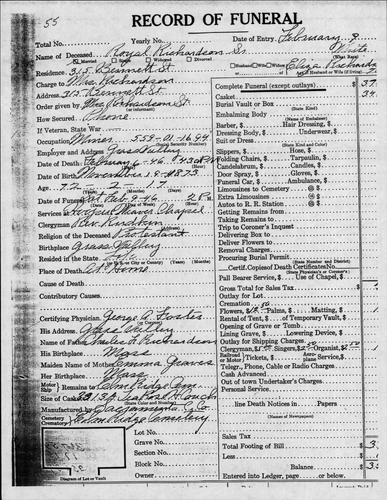 55
RECORD OF FUNERAL
Total No. Yearly No. Date of Entry February 9
Name of Deceased Royal Richardson Sr. White
Married Single Widowed Divorced (What Race)
Residence 315 Bennett St. Husband Wife Widow of Eliza Richards
Charge to Mrs. Richardson
315 Bennett St.
Order given by Mrs. Richardson Sr.
How Secured Phone
If Veteran, State War
Occupation Miner 559-01-1694
Employer and Address Grass Valley
Date of Death February 6-46
Date of Birth November 19-1873
Age 72 2 17
Date of Funeral Sat Feb 9-46 2 P.M.
Services at Hooper Weaver Chapel
Clergyman Rev.
Religion of the Deceased Protestant
Birthplace Grass Valley
Resided in the State Life
Place of Death At Home
Cause of Death
Contributory Causes
Certifying Physician George A. Foster
His Address Grass Valley
Name of Father Richardson
His Birthplace Mass
Name of Mother Graves
Her Birthplace Mass
Motor Ship Remains to Elm Ridge Cem.
Size of Casket
(State Color and Number)
Manufactured by Sacramento
Cemetery Crematory Elm Ridge Cemetery
Lot No.
Grave No.
Section No.
Block No.
Owner
Diagram of Lot or Vault
Complete Funeral (except outlays) $ 37
Casket 34
Burial Vault or Box
(State Kind)
Embalming Body
(Name of Embalmer)
Barber, Hair Dressing
Dressing Body, Underwear,
Suit or Dress
(State Kind and Color)
Slippers, $ Hose, $
Folding Chairs, $ Tarpaulin, $
Candelabrum, $ Candles, $
Door Spray, $ Gloves, $
Funeral Car, $ Ambulance, $
Limousines to Cemetery @ $
Extra Limousines @ $
Autos to R. R. Station @ $
Getting Remains from
Taking Remains to
Trip to Coroner's Inquest
Delivering Box to
Deliver Flowers to
Removal Charges
Procuring Burial Permit
Certif. Copies of Death Certificates $
(State Physician's or Coroner's)
Pall Bearer Service, $ Use of Chapel, $
Gross Total for Sales Tax $
Outlay for Lot
Cremation
Flowers, $ Palms, $ Matting, $
Rental of Tent, $ of Temporary Vault, $
Opening of Grave or Tomb
Lining Grave, $ Lowering Device, $
Outlay for Shipping Charges
Clergyman, $ Singers $ Organist, $
Railroad Motor Tickets, $ Aeroplane Service, $
Telegr., Phone, Cable or Radio Charges
Cash Advanced
Out of town Undertaker's Charges
Personal Service
line Death Notices in Papers
(Names of Newspapers)
Sales Tax
Total Footing of Bill $ 3
Less
Balance $ 3
Entered into Ledger, page or below.